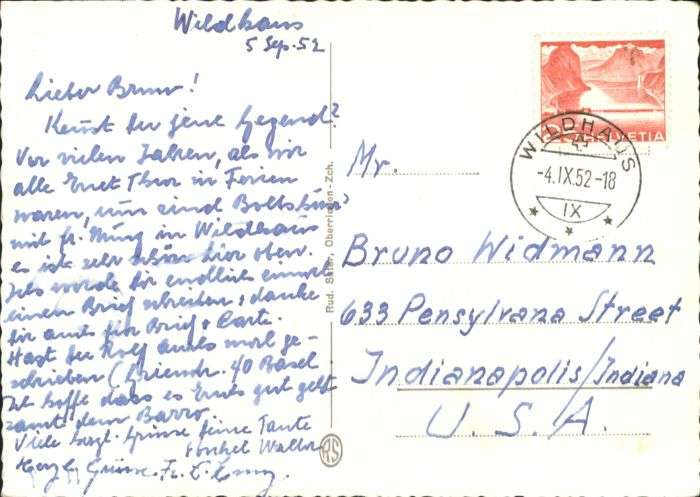 Wildhaus
5 Sep. 52
Lieber Bruno!
Kennst du jene Gegend?
Vor vielen Jahren, als wir
alle Ernet Thur in Ferien
waren, nun sind
mit Fr. in Wildhaus
es ist sehr schön hier oben.
Ich werde dir endlich einmal
einen Brief schreiben & danke
dir auch für Brief & Carte.
Hast du Rolf auch mal ge-
schrieben (Friedr. 40 Basel
Ich hoffe dass es Euch gut geht
samt dem
Viele herzl. Grüsse deine Tante
Walter
Herzl. Grüsse. Fr.
HELVETIA
WILDHAUS
-4.IX.52-18
IX
Mr.
Bruno Widmann
633 Pensylvana Street
Indianapolis/Indiana
U. S. A.
Rud. Suter, Oberrieden-Zch.
RS